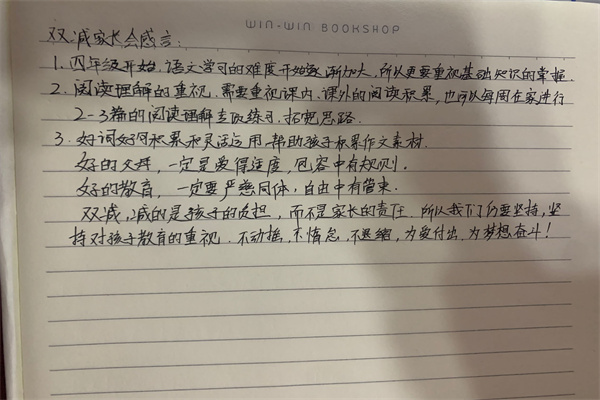 WIN-WIN BOOKSHOP
双减家长会感言:
1. 四年级开始,语文学习的难度开始逐渐加大,所以更要重视基础知识的掌握.
2. 阅读理解的重视,需要重视课内、课外的阅读积累,也可以每周在家进行
2-3篇的阅读理解专项练习,拓宽思路.
3. 好词好句积累和灵活运用,帮助孩子积累作文素材.
好的父母,一定是爱得适度,包容中有规则.
好的教育,一定要严慈同体,自由中有管束.
双减,减的是孩子的负担,而不是家长的责任.所以我们仍要坚持,坚
持对孩子教育的重视.不动摇,不惰怠,不退缩,为爱付出,为梦想奋斗!